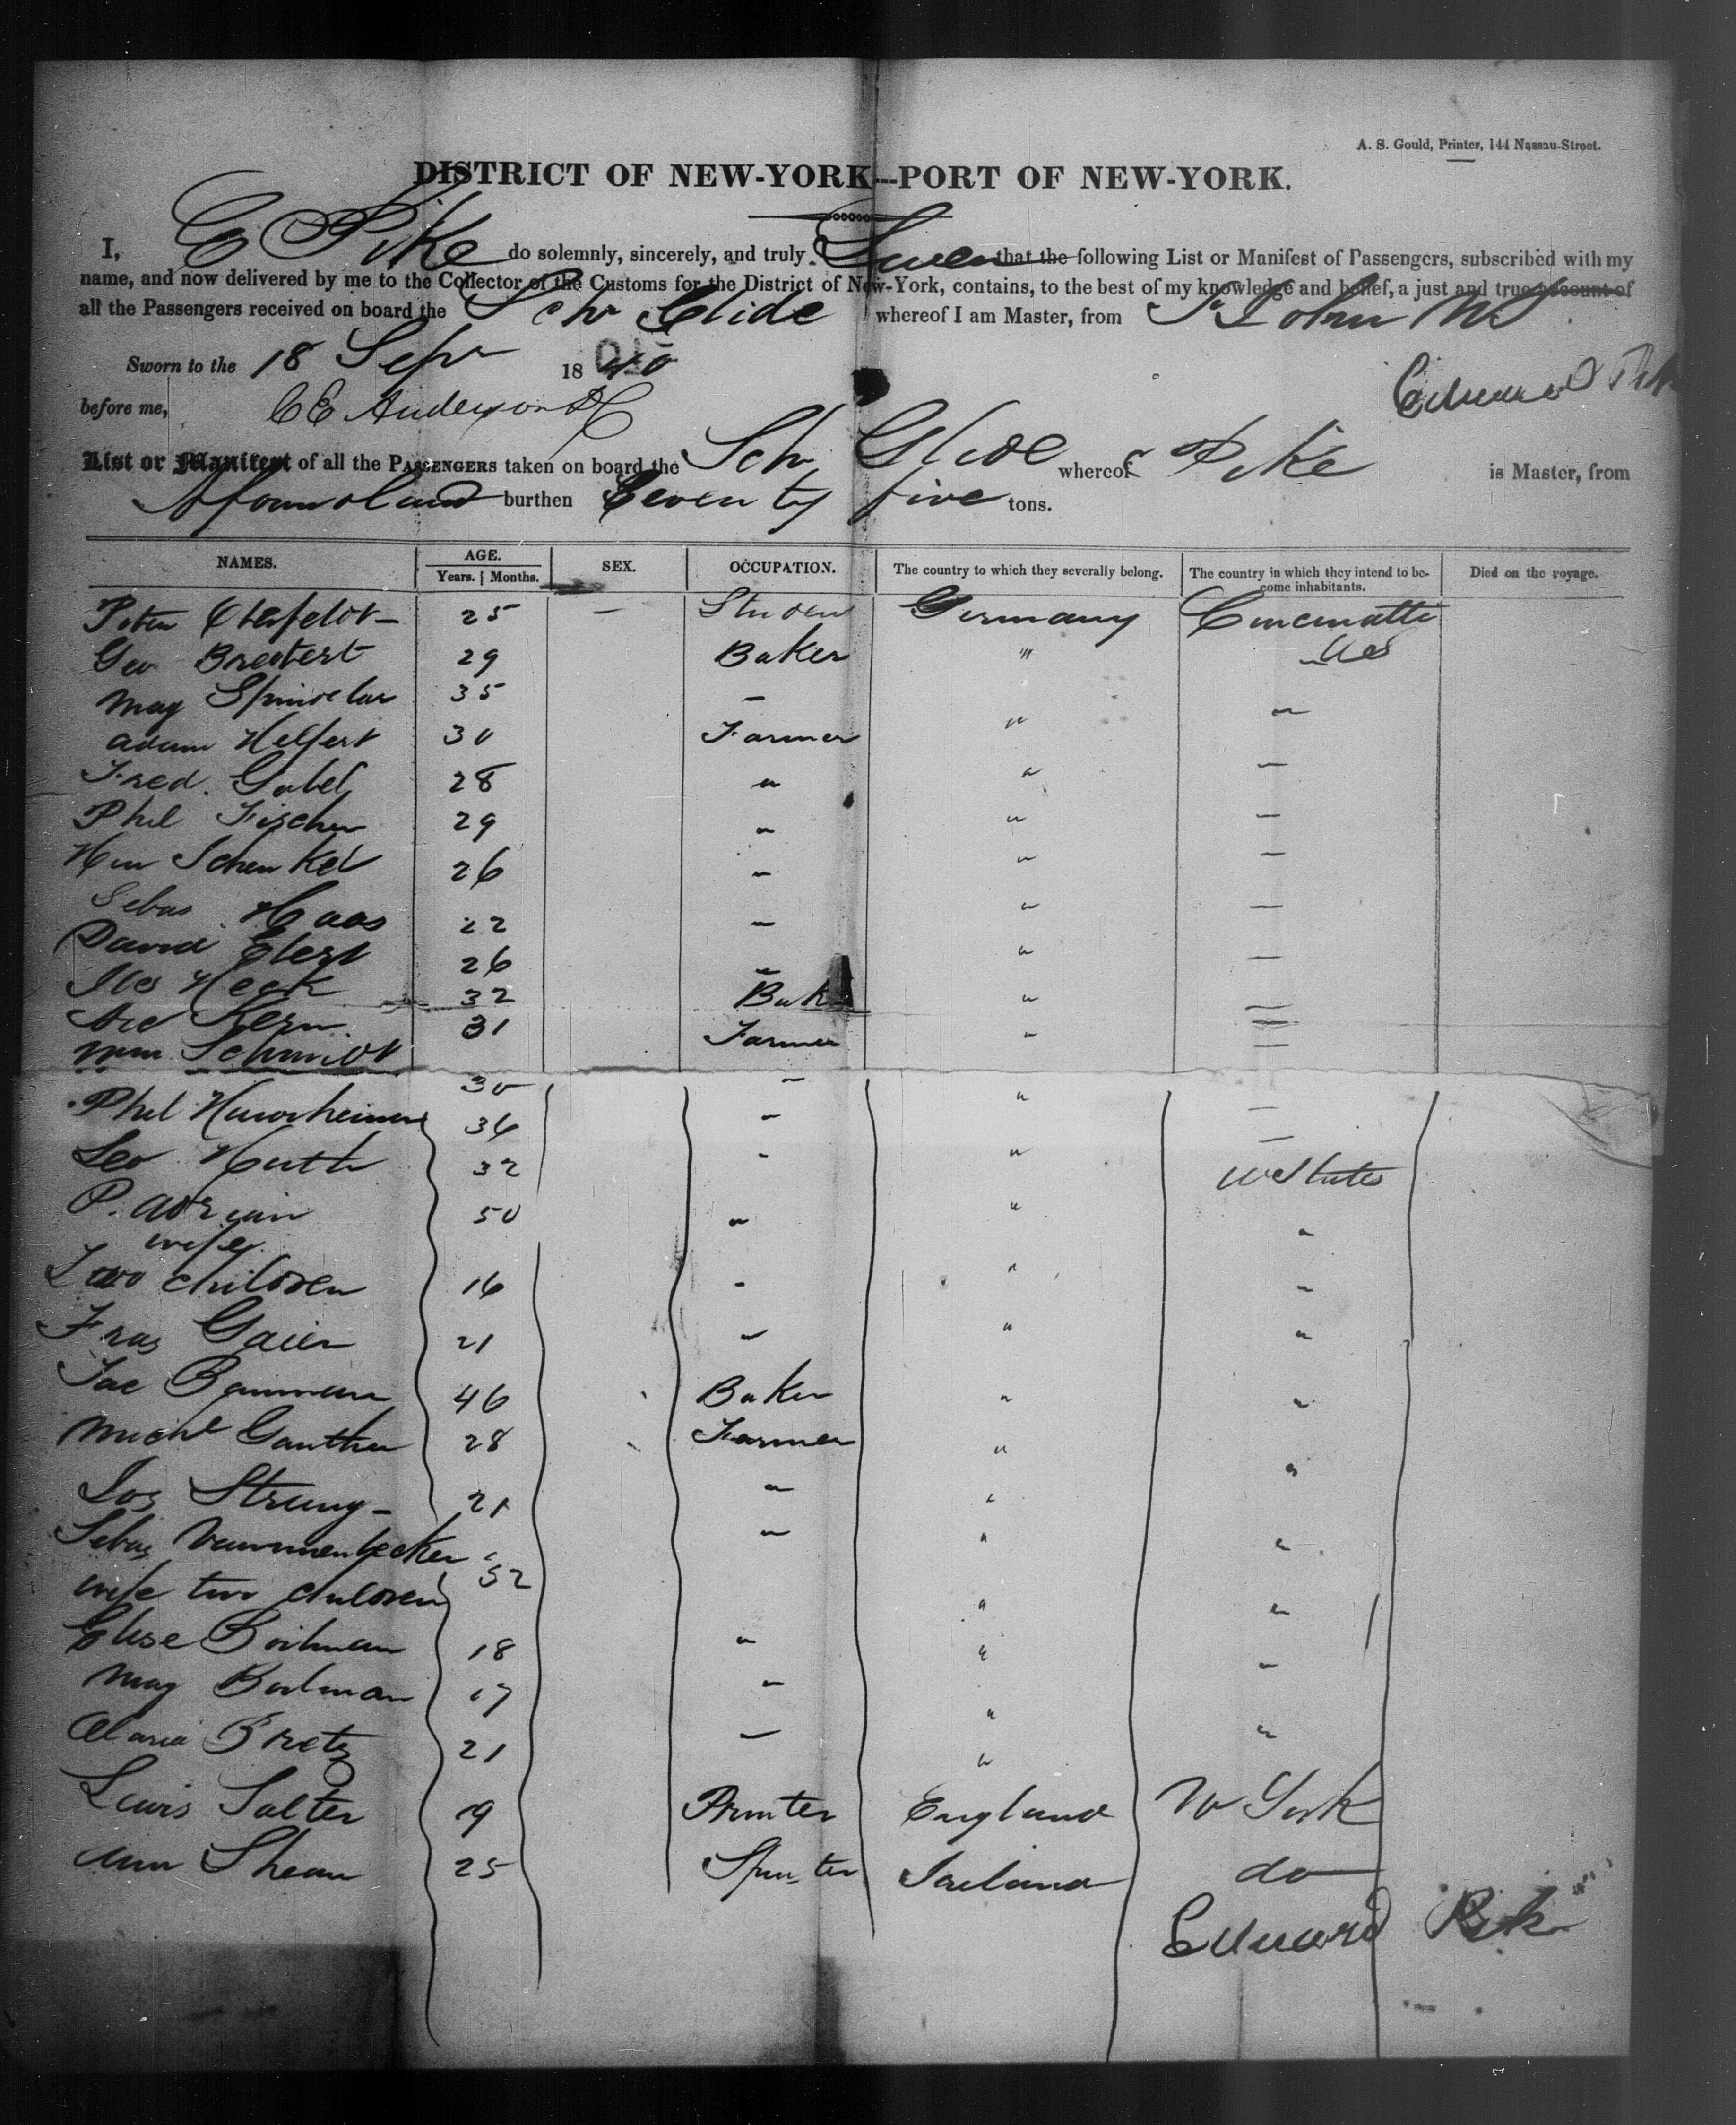 A. S. Gould, Printer, 144 Nassau-Street.
DISTRICT OF NEW-YORK---PORT OF NEW-YORK.
I, E Pike do solemnly, sincerely, and truly Swear that the following List or Manifest of Passengers, subscribed with my
name, and now delivered by me to the Collector of the Customs for the District of New-York, contains, to the best of my knowledge and belief, a just and true account of
all the Passengers received on board the Schr Glide whereof I am Master, from St Johns NF
Sworn to the 18 Sepr 1840
before me, C E Anderson DC Edward Pike
List or Manifest of all the PASSENGERS taken on board the Schr Glide whereof Pike is Master, from
Nfoundland burthen Seventy five tons.
NAMES. AGE. SEX. OCCUPATION. The country to which they severally belong. The country in which they intend to become inhabitants. Died on the voyage.
Years. Months.
Peter 25 — Student Germany Cincinatti
Geo 29 Baker " "
Mag 35 — "
Adam Helfert 30 Farmer " —
Fred. Gabel 28 " " —
Phil Fischer 29 " " —
Hen Schenkel 26 " " —
Sebas Haas 22 " " —
David Ebert 26 " " —
Heck 32 Bak "
Kern 31 Farmer "
Wm Schmidt 30 " "
Phil 36 " "
Geo Huth 32 " " U States
P. Adrian 50 " " "
wife
Two children 16 " " "
Fras Gaier 21 " " "
Jac Baumann 46 Baker " "
Michl Ganther 28 Farmer " "
Jos Strung 21 " "
Sebas 52 " " "
wife two children " "
Elise Boilman 18 " " "
Mag Boilman 17 " "
Maria Bretz 21 " " "
Lewis Salter 19 Printer England N York
Ann Shean 25 Spinster Ireland do
Edward Pike